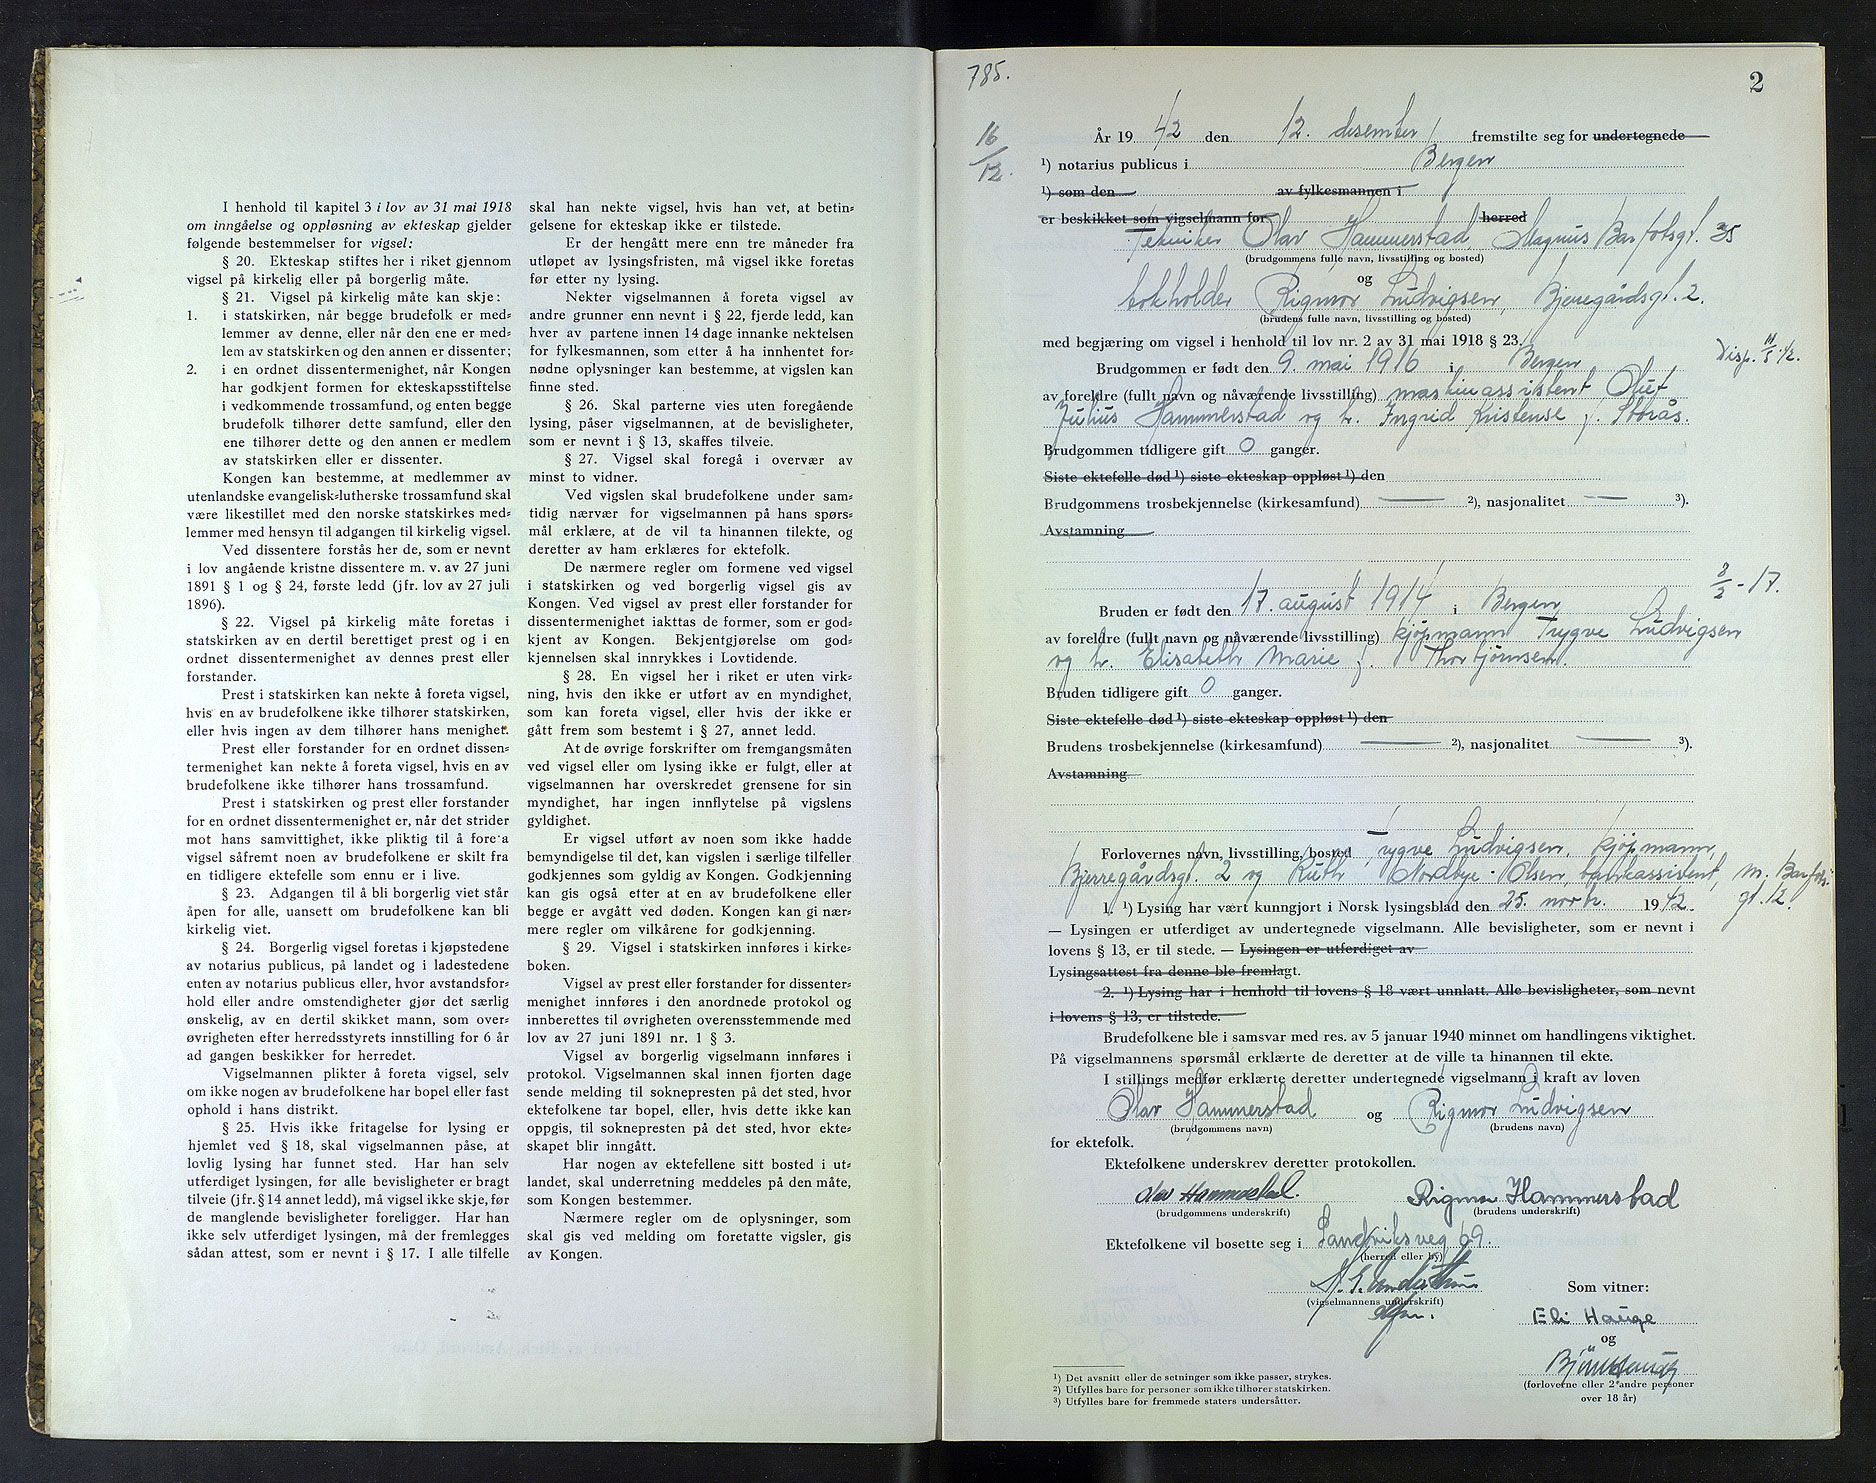 I henhold til kapitel 3 i lov av 31 mai 1918
om inngåelse og oppløsning av ekteskap gjelder
følgende bestemmelser for vigsel:
§ 20. Ekteskap stiftes her i riket gjennom
vigsel på kirkelig eller på borgerlig måte.
§ 21. Vigsel på kirkelig måte kan skje:
1. i statskirken, når begge brudefolk er med-
lemmer av denne, eller når den ene er med-
lem av statskirken og den annen er dissenter;
2. i en ordnet dissentermenighet, når Kongen
har godkjent formen for ekteskapsstiftelse
i vedkommende trossamfund, og enten begge
brudefolk tilhører dette samfund, eller den
ene tilhører dette og den annen er medlem
av statskirken eller er dissenter.
Kongen kan bestemme, at medlemmer av
utenlandske evangelisk-lutherske trossamfund skal
være likestillet med den norske statskirkes med-
lemmer med hensyn til adgangen til kirkelig vigsel.
Ved dissentere forstås her de, som er nevnt
i lov angående kristne dissentere m. v. av 27 juni
1891 § 1 og § 24, første ledd (jfr. lov av 27 juli
1896).
§ 22. Vigsel på kirkelig måte foretas i
statskirken av en dertil berettiget prest og i en
ordnet dissentermenighet av dennes prest eller
forstander.
Prest i statskirken kan nekte å foreta vigsel,
hvis en av brudefolkene ikke tilhører statskirken,
eller hvis ingen av dem tilhører hans menighet.
Prest eller forstander for en ordnet dissen-
termenighet kan nekte å foreta vigsel, hvis en av
brudefolkene ikke tilhører hans trossamfund.
Prest i statskirken og prest eller forstander
for en ordnet dissentermenighet er, når det strider
mot hans samvittighet, ikke pliktig til å fore'a
vigsel såfremt noen av brudefolkene er skilt fra
en tidligere ektefelle som ennu er i live.
§ 23. Adgangen til å bli borgerlig viet står
åpen for alle, uansett om brudefolkene kan bli
kirkelig viet.
§ 24. Borgerlig vigsel foretas i kjøpstedene
av notarius publicus, på landet og i ladestedene
enten av notarius publicus eller, hvor avstandsfor-
hold eller andre omstendigheter gjør det særlig
ønskelig, av en dertil skikket mann, som over-
øvrigheten efter herredsstyrets innstilling for 6 år
ad gangen beskikker for herredet.
Vigselmannen plikter å foreta vigsel, selv
om ikke nogen av brudefolkene har bopel eller fast
ophold i hans distrikt.
§ 25. Hvis ikke fritagelse for lysing er
hjemlet ved § 18, skal vigselmannen påse, at
lovlig lysing har funnet sted. Har han selv
utferdiget lysingen, før alle bevisligheter er bragt
tilveie (jfr. § 14 annet ledd), må vigsel ikke skje, før
de manglende bevisligheter foreligger. Har han
ikke selv utferdiget lysingen, må der fremlegges
sådan attest, som er nevnt i § 17. I alle tilfelle
skal han nekte vigsel, hvis han vet, at betin-
gelsene for ekteskap ikke er tilstede.
Er der hengått mere enn tre måneder fra
utløpet av lysingsfristen, må vigsel ikke foretas
før etter ny lysing.
Nekter vigselmannen å foreta vigsel av
andre grunner enn nevnt i § 22, fjerde ledd, kan
hver av partene innen 14 dage innanke nektelsen
for fylkesmannen, som etter å ha innhentet for-
nødne oplysninger kan bestemme, at vigslen kan
finne sted.
§ 26. Skal parterne vies uten foregående
lysing, påser vigselmannen, at de bevisligheter,
som er nevnt i § 13, skaffes tilveie.
§ 27. Vigsel skal foregå i overvær av
minst to vidner.
Ved vigslen skal brudefolkene under sam-
tidig nærvær for vigselmannen på hans spørs-
mål erklære, at de vil ta hinannen tilekte, og
deretter av ham erklæres for ektefolk.
De nærmere regler om formene ved vigsel
i statskirken og ved borgerlig vigsel gis av
Kongen. Ved vigsel av prest eller forstander for
dissentermenighet iakttas de former, som er god-
kjent av Kongen. Bekjentgjørelse om god-
kjennelsen skal innrykkes i Lovtidende.
§ 28. En vigsel her i riket er uten virk-
ning, hvis den ikke er utført av en myndighet,
som kan foreta vigsel, eller hvis der ikke er
gått frem som bestemt i § 27, annet ledd.
At de øvrige forskrifter om fremgangsmåten
ved vigsel eller om lysing ikke er fulgt, eller at
vigselmannen har overskredet grensene for sin
myndighet, har ingen innflytelse på vigslens
gyldighet.
Er vigsel utført av noen som ikke hadde
bemyndigelse til det, kan vigslen i særlige tilfeller
godkjennes som gyldig av Kongen. Godkjenning
kan gis også etter at en av brudefolkene eller
begge er avgått ved døden. Kongen kan gi nær-
mere regler om vilkårene for godkjenning.
§ 29. Vigsel i statskirken innføres i kirke-
boken.
Vigsel av prest eller forstander for dissenter-
menighet innføres i den anordnede protokol og
innberettes til øvrigheten overensstemmende med
lov av 27 juni 1891 nr. 1 § 3.
Vigsel av borgerlig vigselmann innføres i
protokol. Vigselmannen skal innen fjorten dage
sende melding til soknepresten på det sted, hvor
ektefolkene tar bopel, eller, hvis dette ikke kan
oppgis, til soknepresten på det sted, hvor ekte-
skapet blir inngått.
Har nogen av ektefellene sitt bosted i ut-
landet, skal underretning meddeles på den måte,
som Kongen bestemmer.
Nærmere regler om de oplysninger, som
skal gis ved melding om foretatte vigsler, gis
av Kongen.
785.
2
16/12.
År 19 42 den 12. desember fremstilte seg for undertegnede
¹) notarius publicus i Bergen
¹) som den av fylkesmannen i
er beskikket som vigselmann for herred
Tekniker Olav Hammerstad, Magnus Barfotsgt. 35
(brudgommens fulle navn, livsstilling og bosted)
og
bokholder Rigmor Ludvigsen, Bjerregårdsgt. 2.
(brudens fulle navn, livsstilling og bosted)
med begjæring om vigsel i henhold til lov nr. 2 av 31 mai 1918 § 23.
Disp. 11/5-42.
Brudgommen er født den 9. mai 1916 i Bergen
av foreldre (fullt navn og nåværende livsstilling) maskinassistent Oluf
Julius Hammerstad og h. Ingrid Kristense f. Storås.
Brudgommen tidligere gift 0 ganger.
Siste ektefelle død ¹) siste ekteskap oppløst ¹) den
Brudgommens trosbekjennelse (kirkesamfund) — ²), nasjonalitet — ³).
Avstamning
8/2-17.
Bruden er født den 17. august 1914 i Bergen
av foreldre (fullt navn og nåværende livsstilling) kjøpmann Trygve Ludvigsen
og h. Elisabeth Marie f. Thorbjørnsen.
Bruden tidligere gift 0 ganger.
Siste ektefelle død ¹) siste ekteskap oppløst ¹) den
Brudens trosbekjennelse (kirkesamfund) — ²), nasjonalitet — ³).
Avstamning
Forlovernes navn, livsstilling, bosted Trygve Ludvigsen, kjøpmann,
Bjerregårdsgt. 2 og Ruth Nordbye-Olsen, bankassistent, M. Barfots-
gt. 12.
1. ¹) Lysing har vært kunngjort i Norsk lysingsblad den 25. novbr. 1942.
— Lysingen er utferdiget av undertegnede vigselmann. Alle bevisligheter, som er nevnt i
lovens § 13, er til stede. — Lysingen er utferdiget av
Lysingsattest fra denne ble fremlagt.
2. ¹) Lysing har i henhold til lovens § 18 vært unnlatt. Alle bevisligheter, som nevnt
i lovens § 13, er tilstede.
Brudefolkene ble i samsvar med res. av 5 januar 1940 minnet om handlingens viktighet.
På vigselmannens spørsmål erklærte de deretter at de ville ta hinannen til ekte.
I stillings medfør erklærte deretter undertegnede vigselmann i kraft av loven
Olav Hammerstad og Rigmor Ludvigsen
(brudgommens navn) (brudens navn)
for ektefolk.
Ektefolkene underskrev deretter protokollen.
Olav Hammerstad. Rigmor Hammerstad
(brudgommens underskrift) (brudens underskrift)
Ektefolkene vil bosette seg i Sandviksveg 69.
(herred eller by)
(vigselmannens underskrift)
Som vitner:
Eli Hauge
og
(forloverne eller 2 andre personer
over 18 år)
¹) Det avsnitt eller de setninger som ikke passer, strykes.
²) Utfylles bare for personer som ikke tilhører statskirken.
³) Utfylles bare for fremmede staters undersåtter.